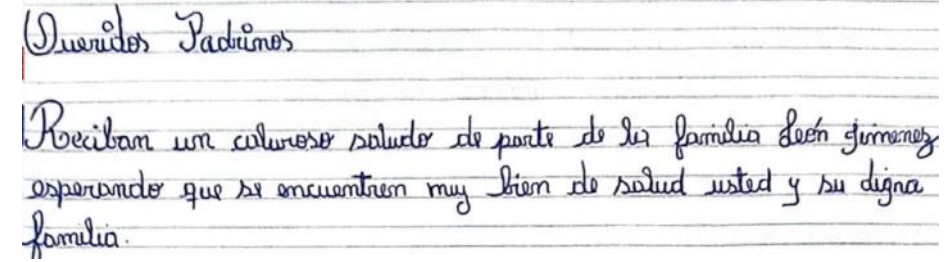 Queridos Padrinos
Reciban un caluroso saludo de parte de la familia León Jimenez
esperando que se encuentren muy bien de salud usted y su digna
familia.